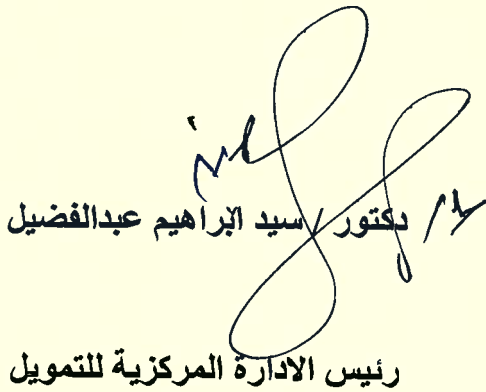 دكتور / سيد ابراهيم عبدالفضيل
رئيس الادارة المركزية للتمويل